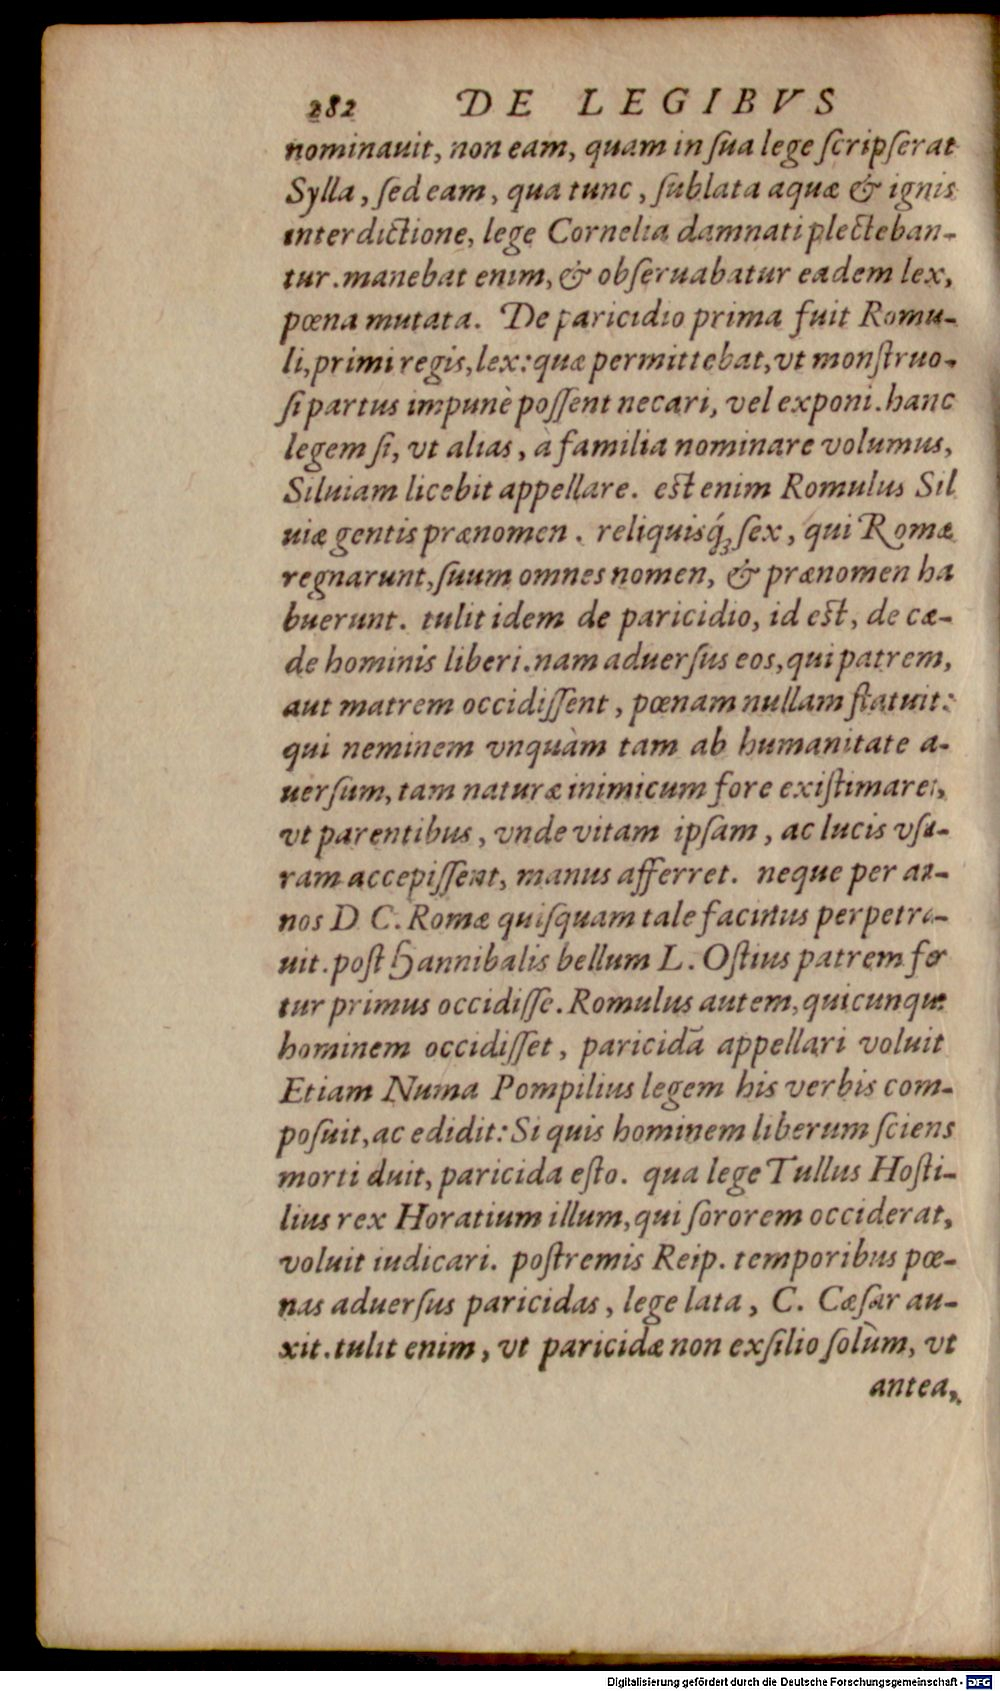 282 DE LEGIBVS
nominauit, non eam, quam in ſua lege ſcripſerat
Sylla, ſed eam, qua tunc, ſublata aquæ & ignis
interdictione, lege Cornelia damnati plecteban-
tur. manebat enim, & obſeruabatur eadem lex,
pœna mutata. De paricidio prima fuit Romu-
li, primi regis, lex: quæ permittebat, vt monſtruo-
ſi partus impunè poſſent necari, vel exponi. hanc
legem ſi, vt alias, à familia nominare volumus,
Siluiam licebit appellare. est enim Romulus Sil
uiæ gentis prænomen. reliquisq́ꝫ ſex, qui Romæ
regnarunt, ſuum omnes nomen, & prænomen ha
buerunt. tulit idem de paricidio, id est, de cæ-
de hominis liberi. nam aduerſus eos, qui patrem,
aut matrem occidiſſent, pœnam nullam ſtatuit:
qui neminem vnquàm tam ab humanitate a-
uerſum, tam naturæ inimicum fore exiſtimaret,
vt parentibus, vnde vitam ipſam, ac lucis vſu-
ram accepiſſent, manus afferret. neque per an-
nos D C. Romæ quiſquam tale facinus perpetra-
uit. poſt Hannibalis bellum L. Oſtius patrem fer
tur primus occidiſſe. Romulus autem, quicunque
hominem occidiſſet, paricidã appellari voluit
Etiam Numa Pompilius legem his verbis com-
poſuit, ac edidit: Si quis hominem liberum ſciens
morti duit, paricida eſto. qua lege Tullus Hoſti-
lius rex Horatium illum, qui ſororem occiderat,
voluit iudicari. poſtremis Reip. temporibus pœ-
nas aduerſus paricidas, lege lata, C. Cæſar au-
xit. tulit enim, vt paricidæ non exſilio ſolùm, vt
antea,
Digitalisierung gefördert durch die Deutsche Forschungsgemeinschaft - DFG